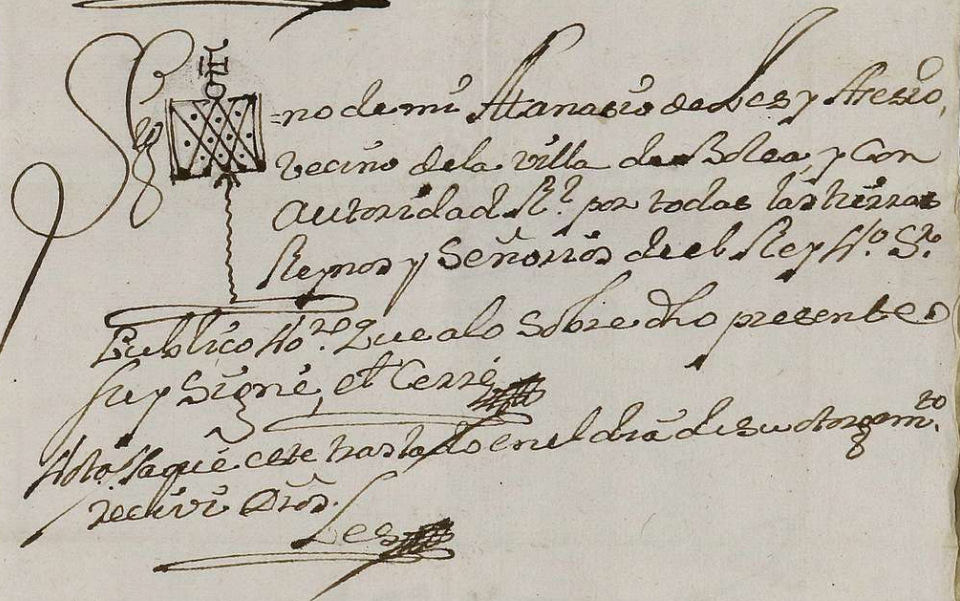 Sig=no de mi Atanasio de Les y Ascaso,
vecino de la villa de Bolea, y con
autoridad Rl. por todas las tierras
Reynos y Señorios de el Rey Nro. Sr.
Publico Noro. Que a lo Sobre dho presente
fuy Signé, et Cerré
Nota. Saqué este traslado en el dia de su otorgamto.
recivi Dros.
Les